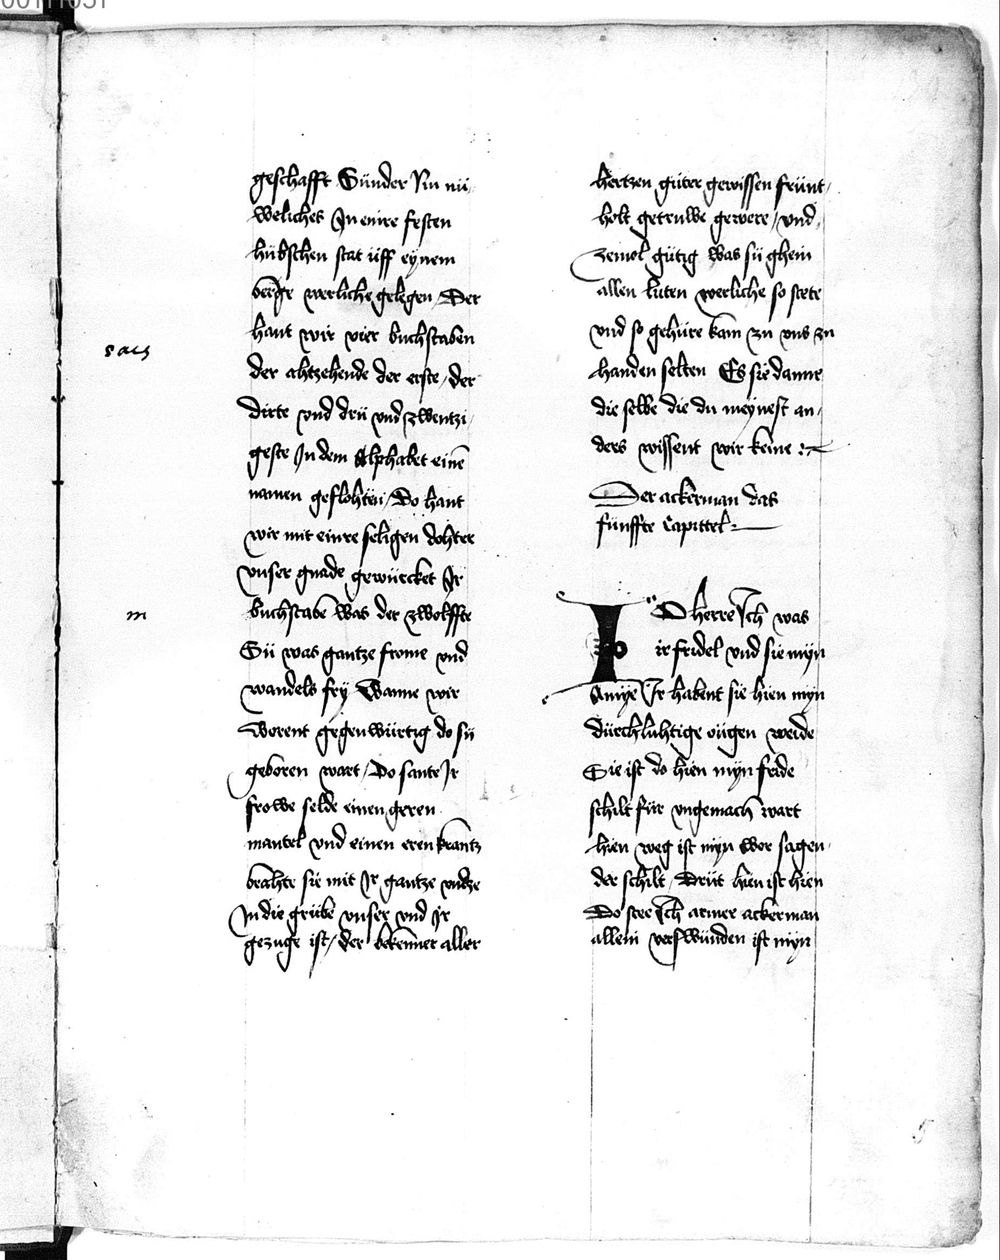 geschafft Sünder Nu nü-
weliches In einre festen
hübschen stat uff eynem
berge werliche gelegen / Der
hant wir vier buchstaben
der ahtzehende der erste / der
dirte vnd drü vnd zwentzi-
geste In dem Alphabet einē
namen geflohten / Do hant
wir mit einre seligen dohter
vnser gnade gewürcket Ir
buchstabe was der zwolffte
Sü was gantze frome vnd
wandels frӱ Wanne wir
worent gegenwürtig do sӱ
geboren wart / Do sante Ir
frowe selde einen geren
mantel vnd einen erenkrantz
brahte sie mit Ir gantze vndze
In die grübe vnser vnd Ir
gezuge ist / der bekenner aller
sacs
m
hertzen güter gewissen frünt-
holt getruwe gewere / vnd
zemol gütig was sü ghein
allen luten werliche so stete
vnd so gehüre kam zu vns zu
handen selten Es sie danne
die selbe die du meynest an-
ders wissent wir keine
Der ackerman das
fünffte Capittel
Io herre Ich was
ir fridel vnd sie mӱn
Amӱe Ir habent sie hien mӱn
dürchluhtige oügen weide
Sie ist do hien mӱn fride
schilt für vngemach wart
hien weg ist mӱn wor sagen-
der schilt / Drüt hien ist hien
Do stee Ich armer ackerman
allein verswünden ist mӱn
5